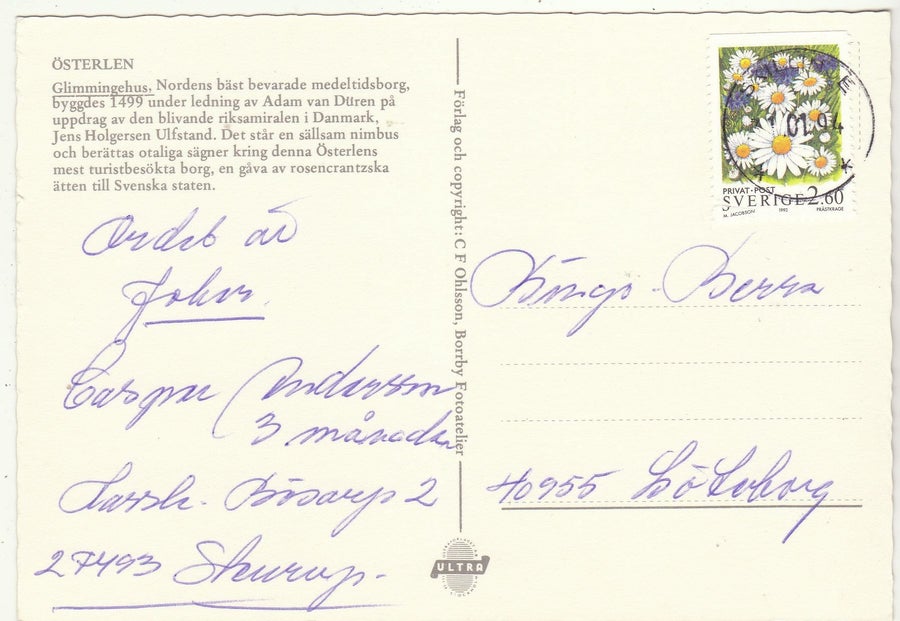 ÖSTERLEN
Glimmingehus, Nordens bäst bevarade medeltidsborg,
byggdes 1499 under ledning av Adam van Düren på
uppdrag av den blivande riksamiralen i Danmark,
Jens Holgersen Ulfstand. Det står en sällsam nimbus
och berättas otaliga sägner kring denna Österlens
mest turistbesökta borg, en gåva av rosencrantzska
ätten till Svenska staten.
Ordet är
John.
Caspar Andersson
3 månader
Bösarp 2
27493 Skurup.
Förlag och copyright: C F Ohlsson, Borrby Fotoatelier
ULTRA
PRIVAT·POST
SVERIGE 2.60
M. JACOBSON 1992 PRÄSTKRAGE
01.94
Bingo-Berra
40955 Göteborg